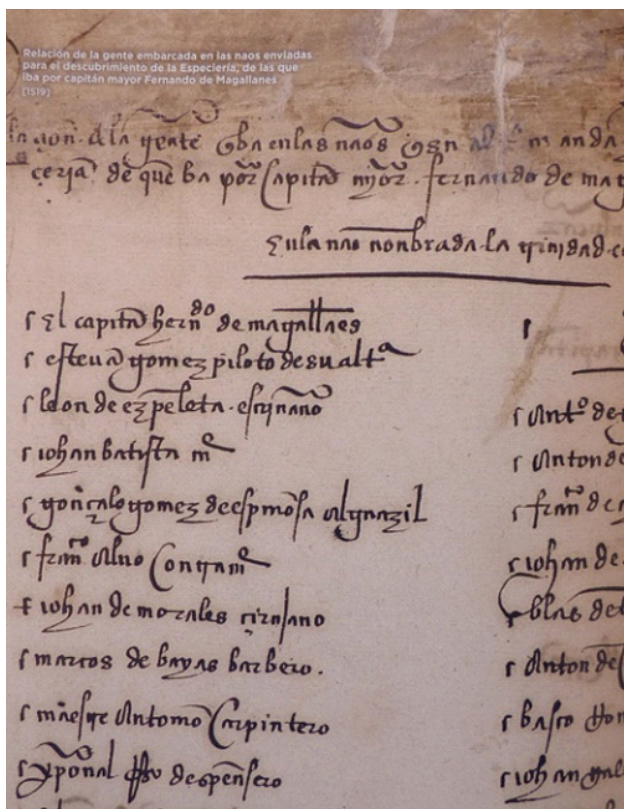 Relación de la gente embarcada en las naos enviadas
para el descubrimiento de la Especiería, de las que
iba por capitán mayor Fernando de Magallanes
(1519)
de la gente q̃ ba en las naos
cería de que ba por capitã mỹor fernando de mag
En la nao nonbrada la trinidad
El capitã hernᵈᵒ de magallães
estevã gomez piloto de su altᵃ
leon de ezpeleta escriuano
iohan batista mᵉ
gonçalo gomez de espinosa alguazil
franᶜᵒ aluo contramᵉ
iohan de morales cirujano
marcos de bayas barbero.
maestre antonio carpintero
xpoual despensero
antᵒ de
anton de
franᶜᵒ de
iohan de
blas de
anton de
basco
iohan gall